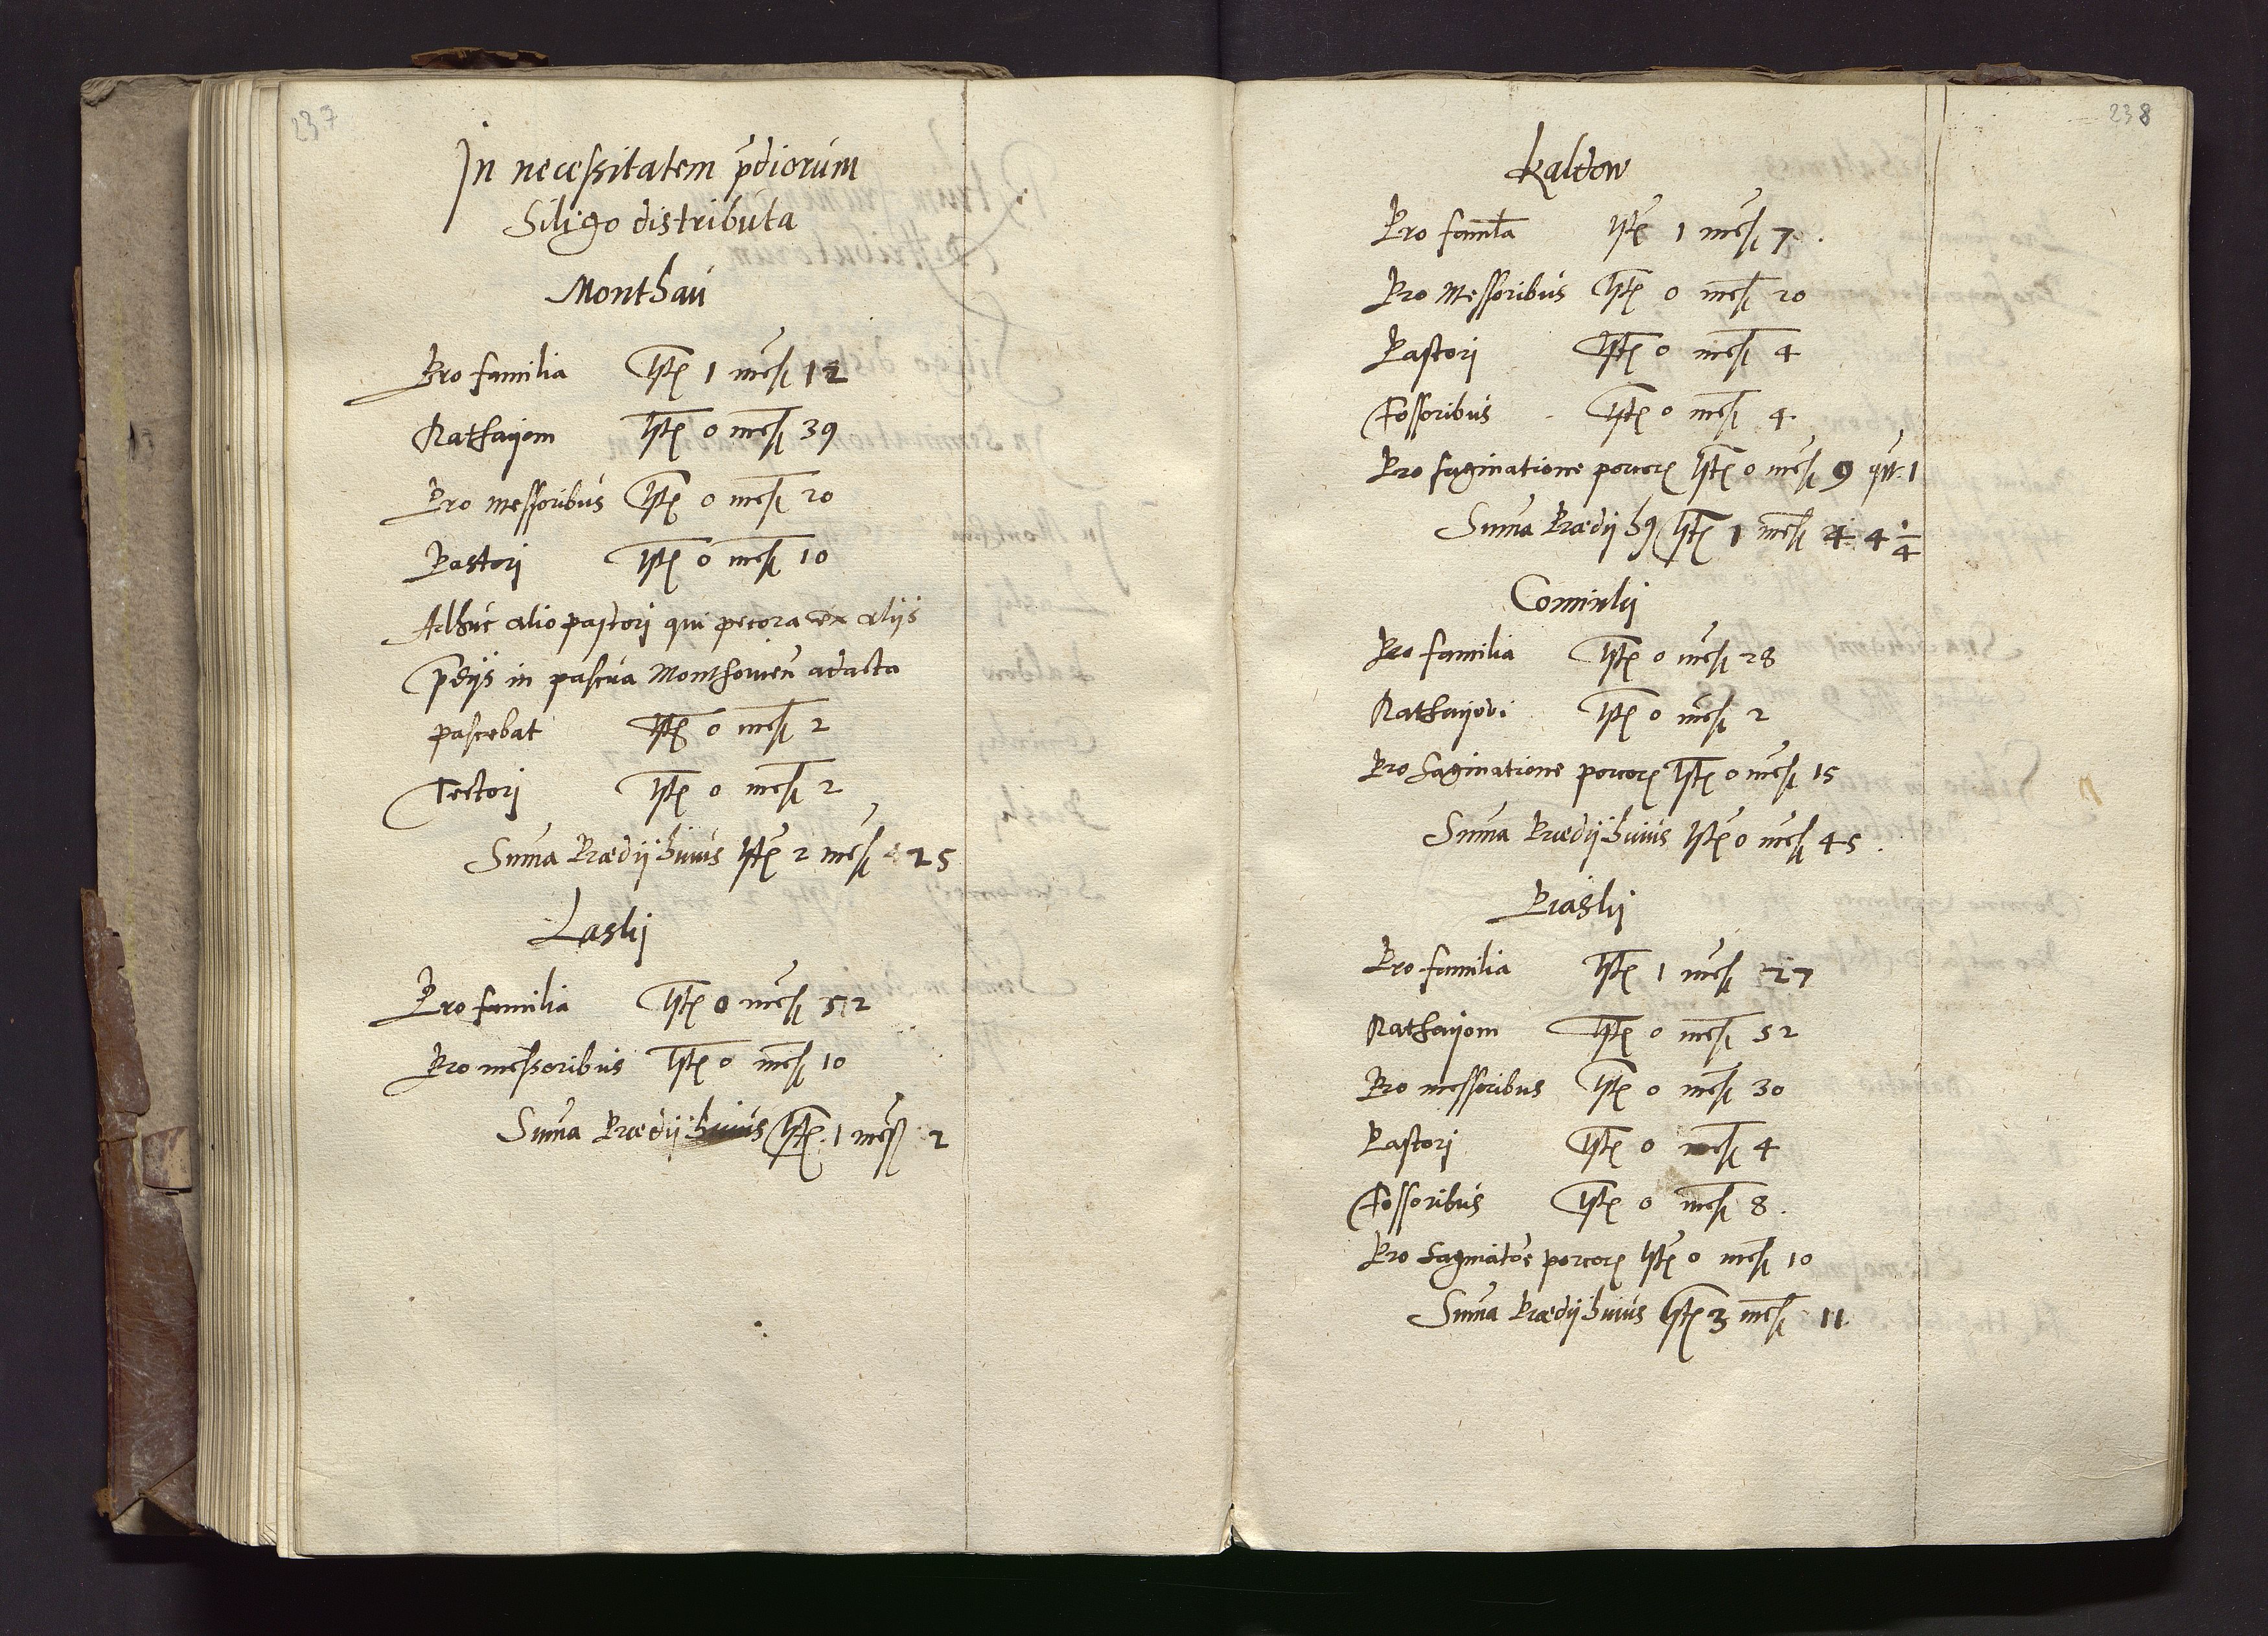 237
In necessitatem p̄diorum
Siligo distributa
Monthau
Pro familia lſt 1 meſ 12
Rathayom lſt 0 meſ 39
Pro messoribus lſt 0 meſ 20
Pastorj lſt 0 meſ 10
Adhuc alio pastorj qui pecora ex alijs
p̄dijs in pascua Monthouien̄ adacta
pascebat lſt 0 meſ 2
Tectorj lſt 0 meſ 2
Sum̄a Prædij huius lſt 2 meſ 25
Laslij
Pro familia lſt 0 meſ 52
Pro messoribus lſt 0 meſ 10
Sum̄a Prædij huius lſt 1 meſ 2
238
Kaldow
Pro famīla lſt 1 meſ 7.
Pro Messoribus lſt 0 meſ 20
Pastorj lſt 0 meſ 4
Fossoribus lſt 0 meſ 4
Pro saginatione porcor lſt 0 meſ 9 qrt 1
Sum̄a Prædij h9 lſt 1 meſ 4 1/4
Comirlij
Pro familia lſt 0 meſ 28
Rathayovi lſt 0 meſ 2
Pro saginatione porcor lſt 0 meſ 15
Sum̄a Prædij huius lſt 0 meſ 45.
Praslij
Pro familia lſt 1 meſ 27
Rathayom lſt 0 meſ 52
Pro messoribus lſt 0 meſ 30
Pastorj lſt 0 meſ 4
Fossoribus lſt 0 meſ 8.
Pro saginatōe porcor lſt 0 meſ 10
Sum̄a Prædij huius lſt 3 meſ 11